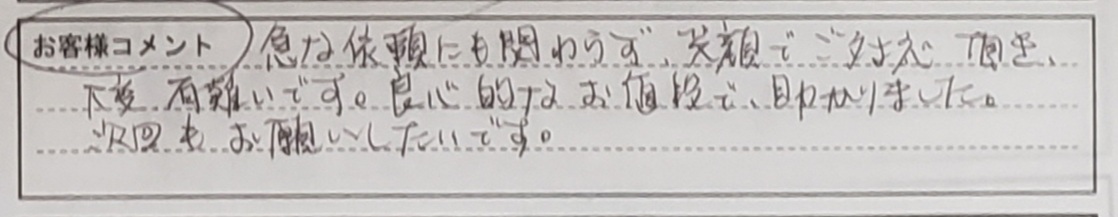 お客様コメント 急な依頼にも関わらず、笑顔でご対応頂き、
大変有難いです。良心的なお値段で、助かりました。
次回もお願いしたいです。